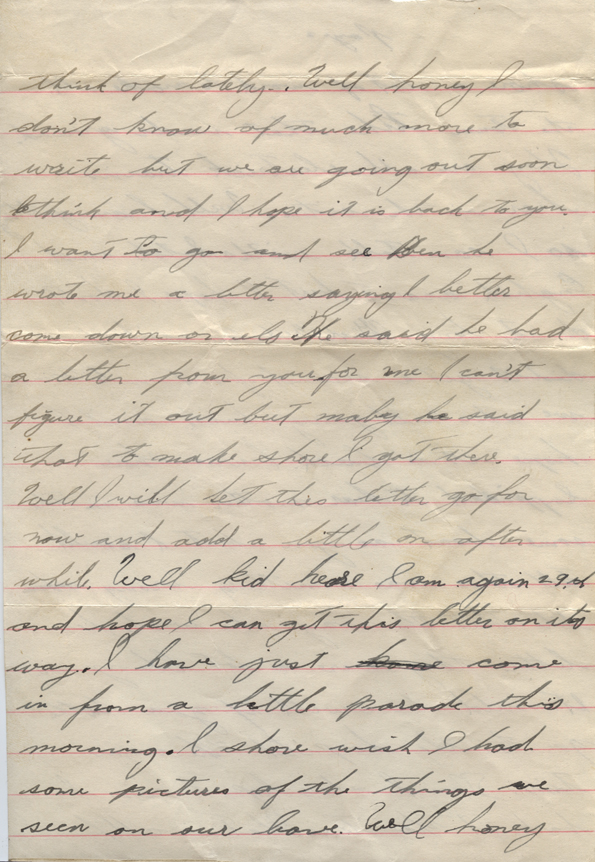 think of lately. Well honey I
don't know of much more to
write but we are going out soon
I think and I hope it is back to you.
I want to go and see Ben he
wrote me a letter saying I better
come down or els he said he had
a letter from you for me I can't
figure it out but maby he said
that to make shore I got there.
Well I will let this letter go for
now and add a little on after
while. Well kid heare I am again 29th
and hope I can get this letter on its
way. I have just come
in from a little parade this
morning. I shore wish I had
some pictures of the things we
seen on our leave. Well honey